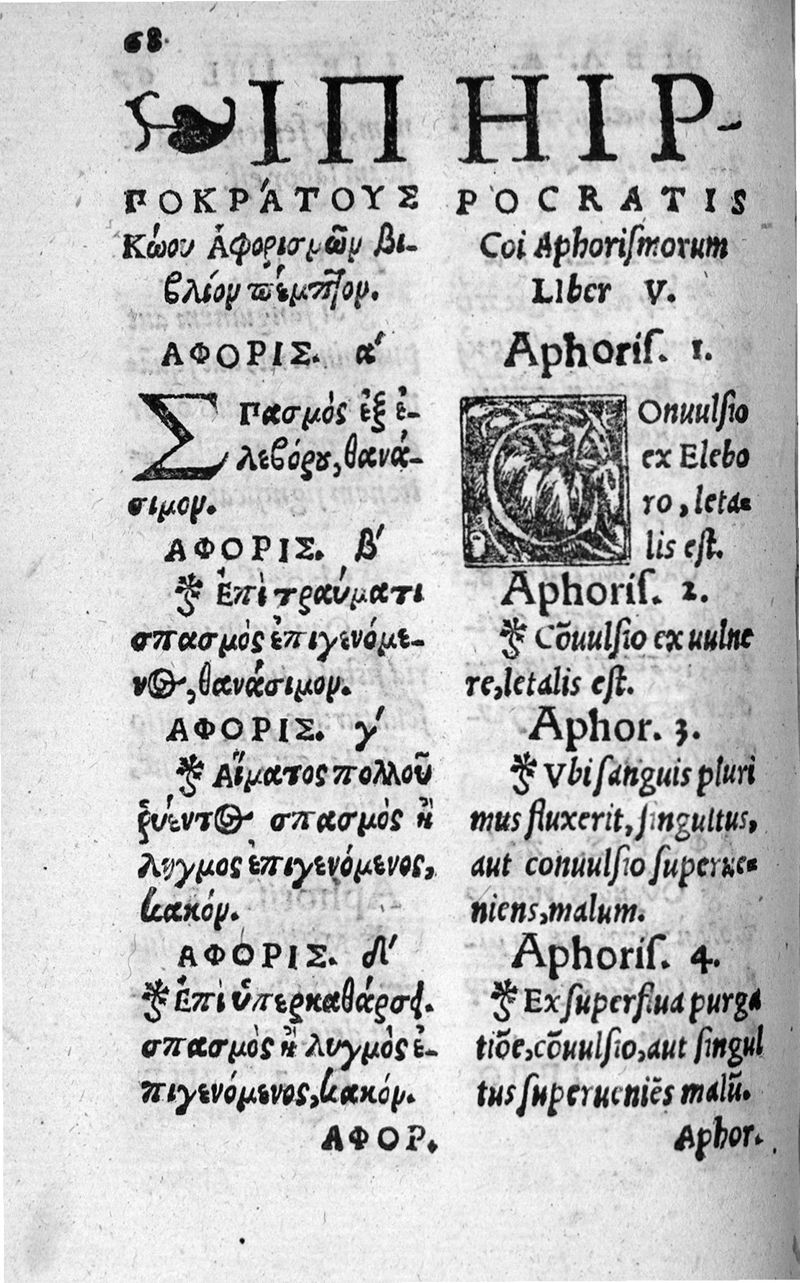 68
ΙΠ
ΠΟΚΡΆΤΟΥΣ
Κώου Ἀφορισμῶν βι-
βλίον πέμπτον.
ΑΦΟΡΙΣ. α´
ΣΠασμὸς ἐξ ἐ-
λεβόρου, θανά-
σιμον.
ΑΦΟΡΙΣ. β´
Ἐπὶ τραύματι
σπασμὸς ἐπιγενόμε-
νος, θανάσιμον.
ΑΦΟΡΙΣ. γ´
Αἵματος πολλοῦ
ῥυέντος σπασμὸς ἢ
λυγμος ἐπιγενόμενος,
κακόν.
ΑΦΟΡΙΣ. δ´
Ἐπὶ ὑπερκαθάρσει
σπασμὸς ἢ λυγμὸς ἐ-
πιγενόμενος, κακόν.
ΑΦΟΡ.
HIP-
POCRATIS
Coi Aphoriſmorum
LIber V.
Aphoriſ. 1.
COnuulſio
ex Elebo
ro, leta-
lis eſt.
Aphoriſ. 2.
Cōuulſio ex uulne
re, letalis eſt.
Aphor. 3.
Vbi ſanguis pluri
mus fluxerit, ſingultus,
aut conuulſio ſuperue-
niens, malum.
Aphoriſ. 4.
Ex ſuperflua purga
tiōe, cōuulſio, aut ſingul
tus ſuperueniēs malū.
Aphor.